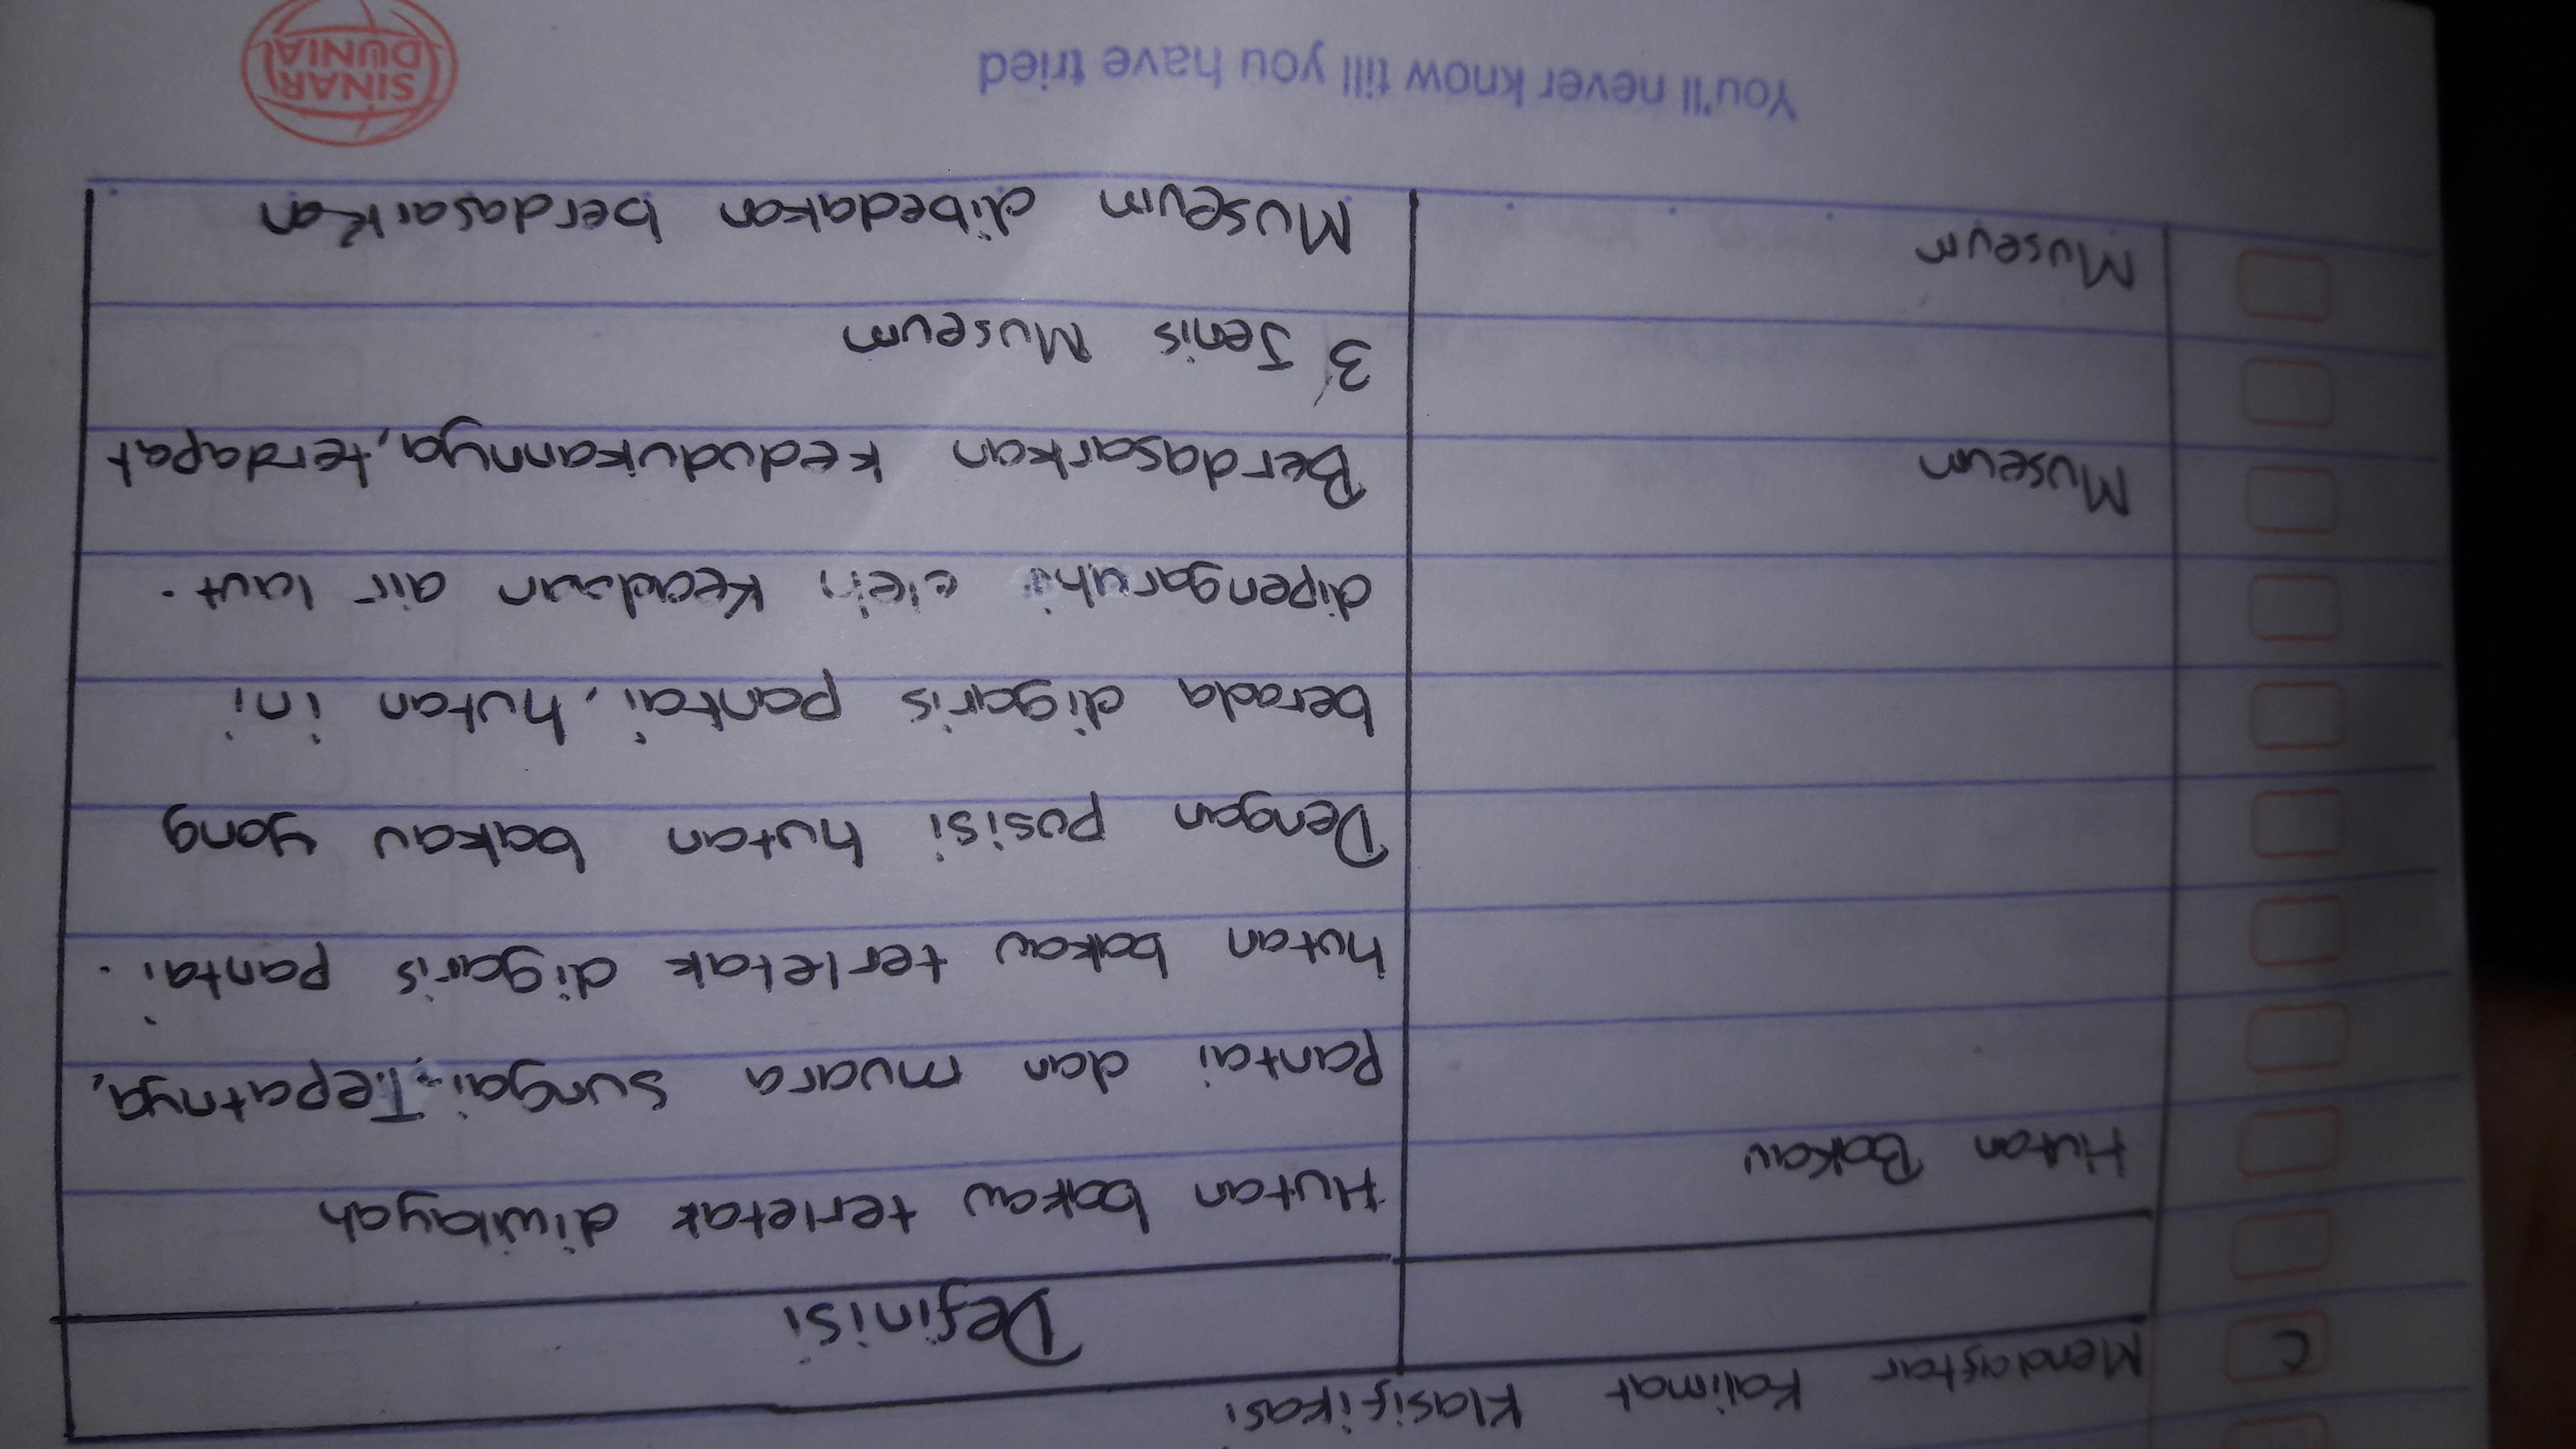 C Mendaftar Kalimat Klasifikasi
Definisi
Hutan Bakau Hutan bakau terletak diwilayah
Pantai dan muara sungai. Tepatnya,
hutan bakau terletak digaris pantai.
Dengan posisi hutan bakau yang
berada digaris pantai, hutan ini
dipengaruhi oleh Keadaan air laut.
Museum Berdasarkan kedudukannya, terdapat
3 Jenis Museum
Museum Museum dibedakan berdasarkan
SINAR
DUNIA
You'll never know till you have tried